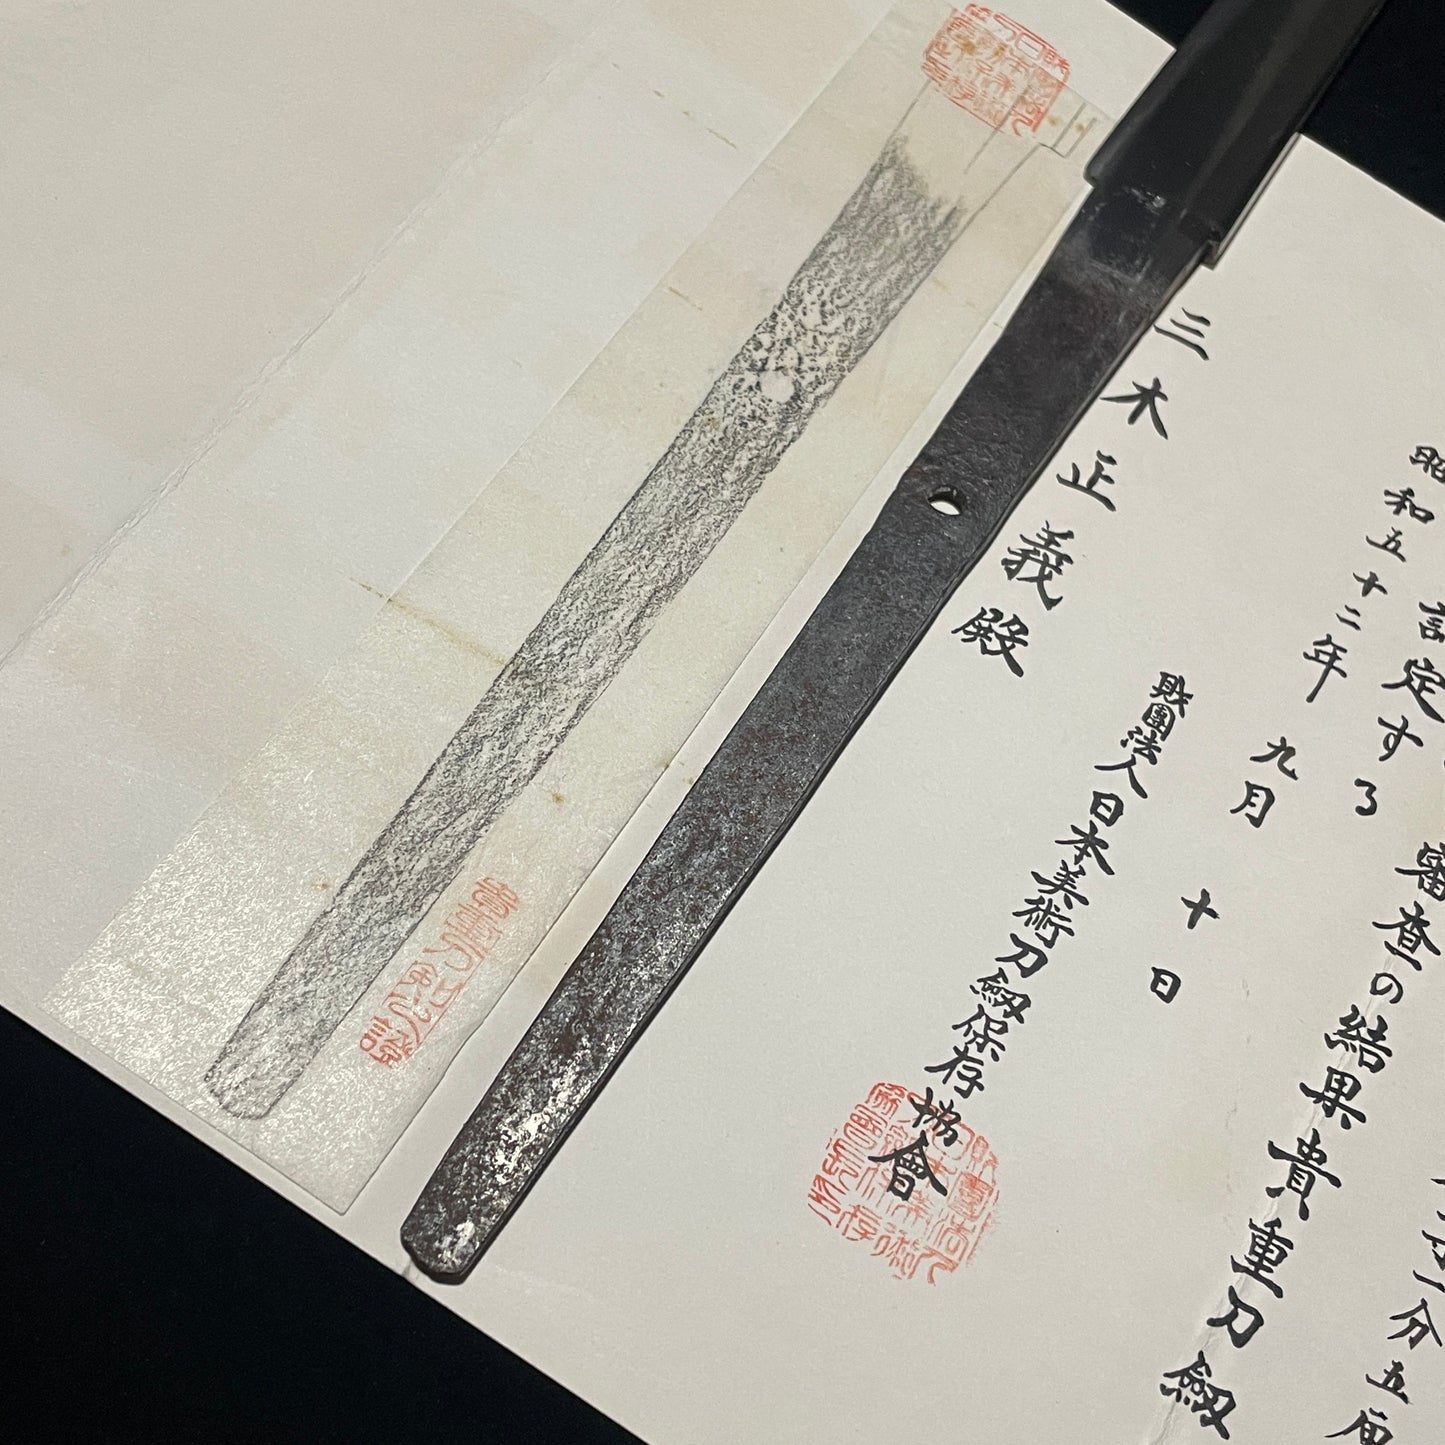 分五厘
審査の結果貴重刀剱
認定する
昭和五十二年 九月 十日
財團法人日本美術刀剱保存協會
三木正義殿